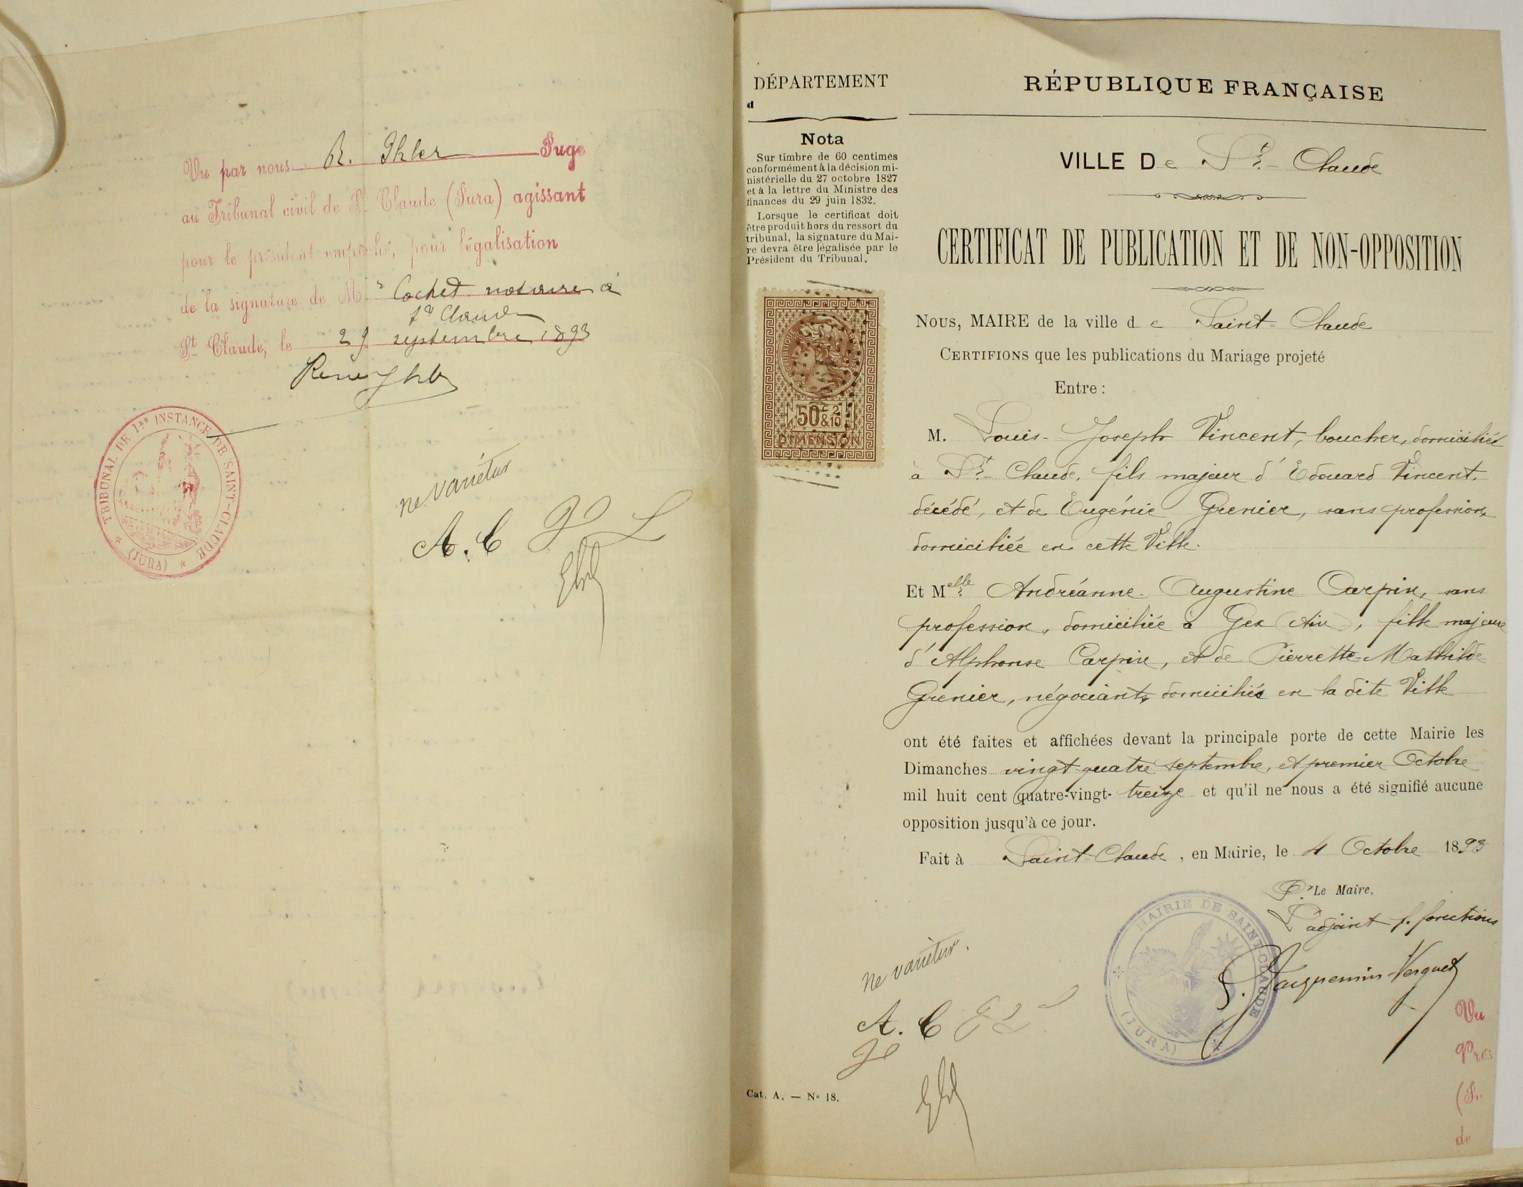 Vu par nous R. Ihler Juge
au Tribunal civil de St Claude (Jura) agissant
pour le président empêché, pour légalisation
de la signature de Me Cochet notaire à
St Claude
St Claude, le 29 septembre 1893
René Ihler
TRIBUNAL DE 1re INSTANCE DE SAINT-CLAUDE
(JURA)
Ne varietur
A. C
DÉPARTEMENT
d
Nota
Sur timbre de 60 centimes
conformément à la décision mi-
nistérielle du 27 octobre 1827
et à la lettre du Ministre des
finances du 29 juin 1832.
Lorsque le certificat doit
être produit hors du ressort du
tribunal, la signature du Mai-
re devra être légalisée par le
Président du Tribunal.
50c & 2/10
DIMENSION
RÉPUBLIQUE FRANÇAISE
VILLE De St Claude
CERTIFICAT DE PUBLICATION ET DE NON-OPPOSITION
NOUS, MAIRE de la ville de Saint-Claude
CERTIFIONS que les publications du Mariage projeté
Entre :
M. Louis-Joseph Vincent, boucher, domicilié
à St Claude, fils majeur d'Edouard Vincent,
décédé, et de Eugénie Grenier, sans profession,
domiciliée en cette Ville.
Et Melle Andréanne-Augustine Carpin, sans
profession, domiciliée à Gex (Ain), fille majeure
d'Alphonse Carpin, et de Pierrette-Mathilde
Grenier, négociants, domiciliés en la dite Ville
ont été faites et affichées devant la principale porte de cette Mairie les
Dimanches vingt-quatre septembre, et premier Octobre
mil huit cent quatre-vingt-treize et qu'il ne nous a été signifié aucune
opposition jusqu'à ce jour.
Fait à Saint-Claude, en Mairie, le 4 Octobre 1893
Pr Le Maire,
L'adjoint f. fonctions
MAIRIE DE SAINT-CLAUDE
(JURA)
Ne varietur.
A. C
Cat. A. — No 18.
Vu
Prés
de